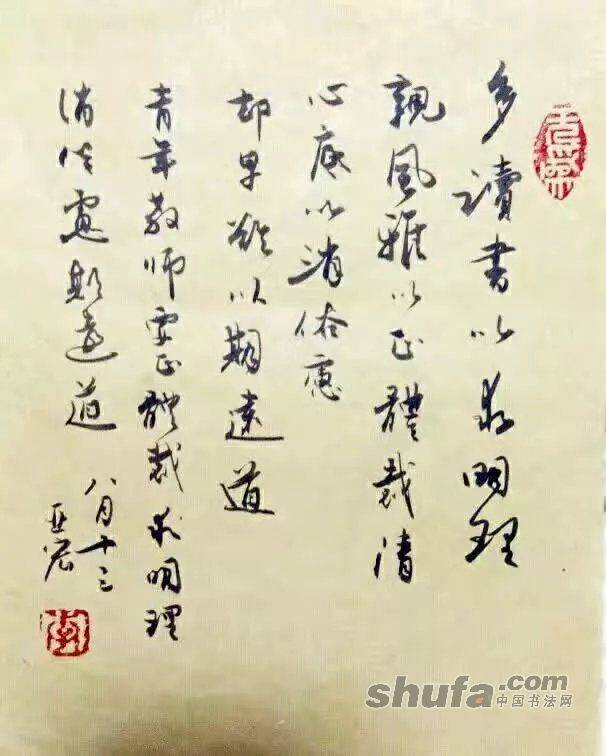 多讀書以求明理
親風雅以正體裁清
心底以消俗慮
却欲以期遠道
青年教師要正體裁求明理
消俗慮期遠道
八月十三
亚宏
李
shufa.com
中国书法网